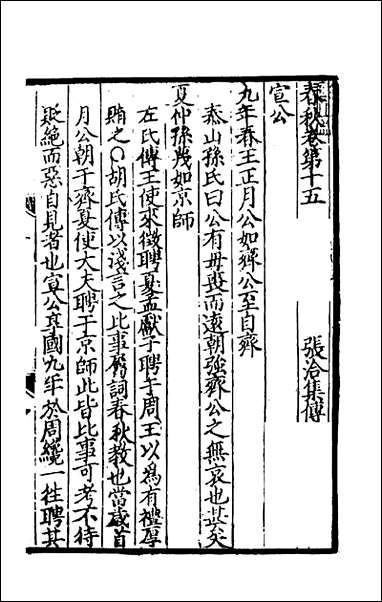 春秋卷第十五
張洽集傳
宣公
九年春王正月公如齊公至自齊
泰山孫氏曰公有母喪而遠朝強齊公之無哀也甚矣
夏仲孫蔑如京師
左氏傳王使來徵聘夏孟獻子聘于周王以爲有禮厚
賄之○胡氏傳以淺言之比事屬詞春秋敎也當歲首
月公朝于齊夏使大夫聘于京師此皆比事可考不待
貶絶而惡自見者也宣公享國九年於周纔一往聘其